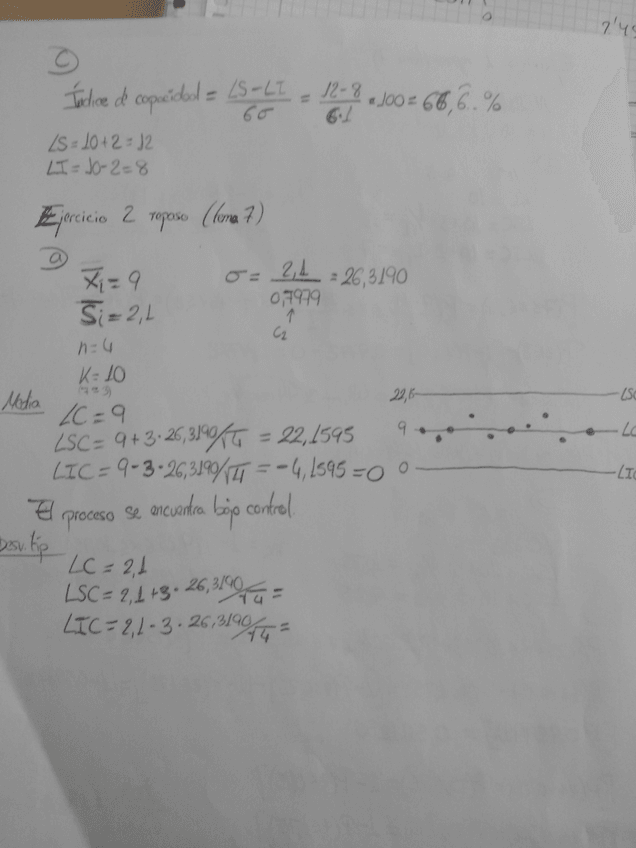 7'45
c)
Índice de capacidad = LS-LI/6σ = 12-8/6·1 · 100 = 66,6̂.%
LS=10+2=12
LI=10-2=8
Ejercicio 2 repaso (tema 7)
a)
X̄i = 9 σ = 2,1/0,7979 = 26,3190
S̄i = 2,1 ↑ C2
n=4
K=10
Media
LC = 9
LSC = 9+3·26,3190/√4 = 22,1595
LIC = 9-3·26,3190/√4 = -4,1595 = 0
22,6 LSC
9 LC
0 LIC
El proceso se encuentra bajo control.
Desv. tip
LC = 2,1
LSC = 2,1+3·26,3190/√4 =
LIC = 2,1-3·26,3190/√4 =